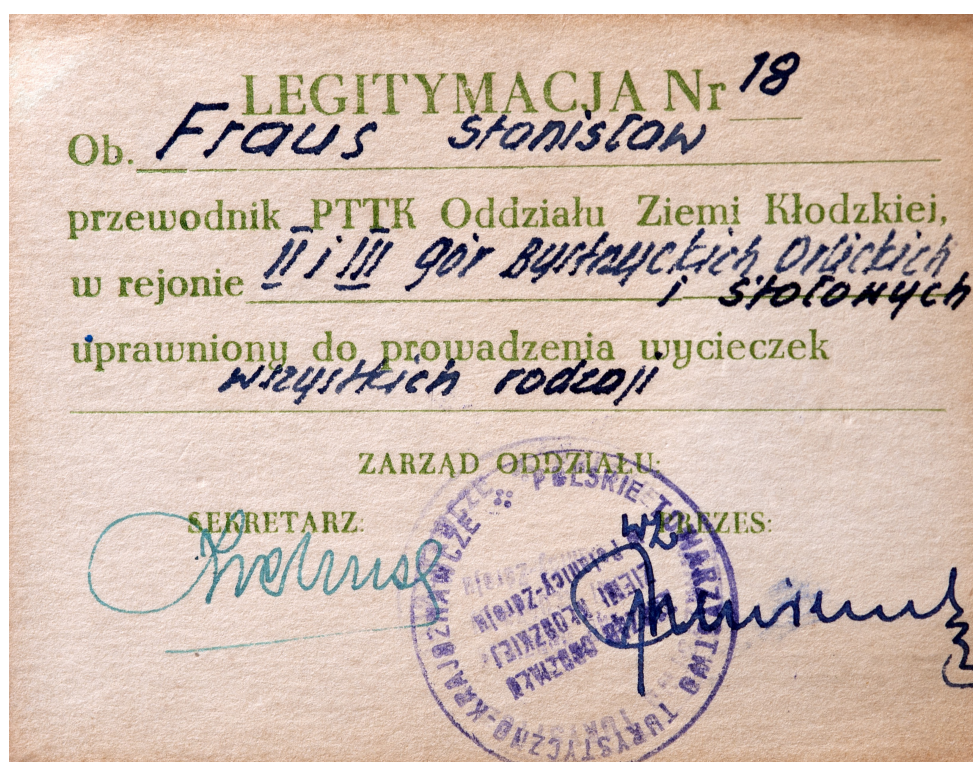 LEGITYMACJA Nr 18
Ob. Fraus Stanisław
przewodnik PTTK Oddziału Ziemi Kłodzkiej,
w rejonie II i III gór Bystrzyckich Orlickich
i Stołowych
uprawniony do prowadzenia wycieczek
wszystkich rodzaji
ZARZĄD ODDZIAŁU:
SEKRETARZ: PREZES:
wz
POLSKIE TOWARZYSTWO TURYSTYCZNO-KRAJOZNAWCZE
ZARZĄD ODDZIAŁU
ZIEMI KŁODZKIEJ